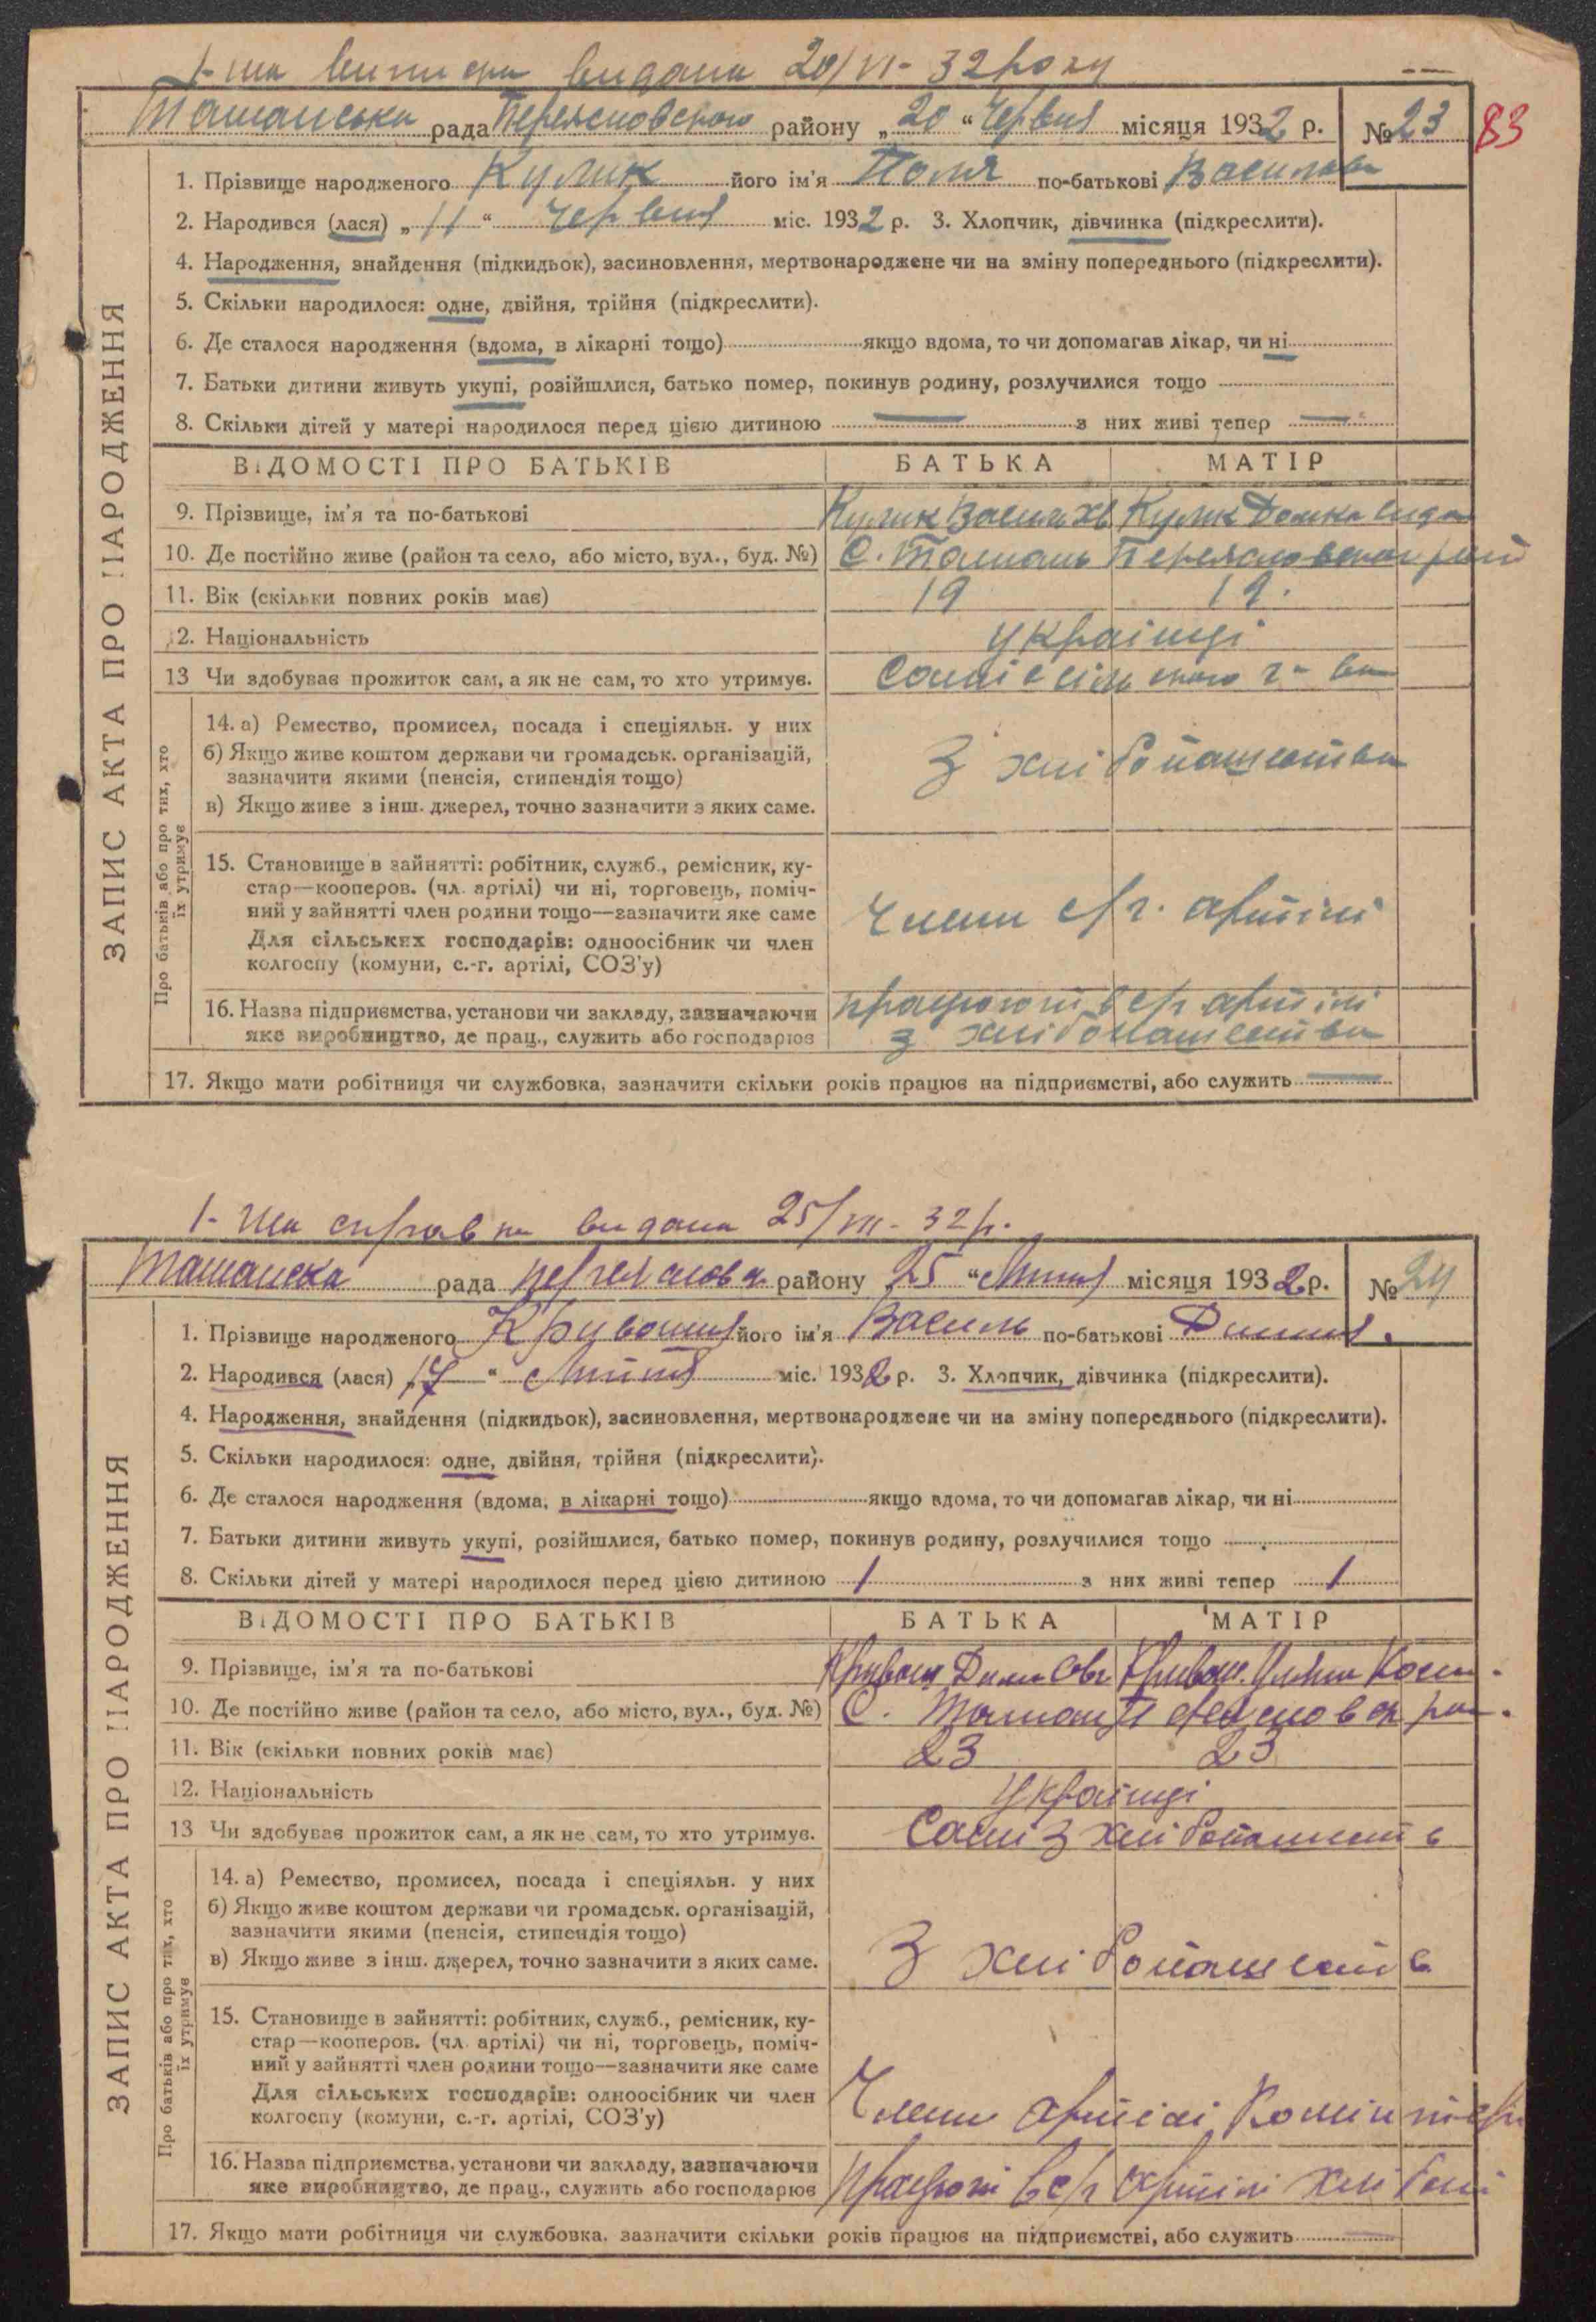 1-ша виписка видана 20/VI - 32 року
Ташанська рада Переясловського району „20“ Червня місяця 1932 р. № 23 83
ЗАПИС АКТА ПРО НАРОДЖЕННЯ
1. Прізвище народженого Кулик його ім'я Поля по-батькові Василівн
2. Народився (лася) „11“ Червня міс. 1932 р. 3. Хлопчик, дівчинка (підкреслити).
4. Народження, знайдення (підкидьок), засиновлення, мертвонароджене чи на зміну попереднього (підкреслити).
5. Скільки народилося: одне, двійня, трійня (підкреслити).
6. Де сталося народження (вдома, в лікарні тощо) якщо вдома, то чи допомагав лікар, чи ні
7. Батьки дитини живуть укупі, розійшлися, батько помер, покинув родину, розлучилися тощо
8. Скільки дітей у матері народилося перед цією дитиною — з них живі тепер —
ВІДОМОСТІ ПРО БАТЬКІВ БАТЬКА МАТІР
9. Прізвище, ім'я та по-батькові Кулик Василь Кулик Домка
10. Де постійно живе (район та село, або місто, вул., буд. №) С. Ташань Переясловського рай
11. Вік (скільки повних років має) 19 19.
12. Національність українці
13 Чи здобуває прожиток сам, а як не сам, то хто утримує. Самі с сільського г-ва
Про батьків або про тих, хто їх утримує
14. а) Ремество, промисел, посада і спеціяльн. у них
б) Якщо живе коштом держави чи громадськ. організацій,
зазначити якими (пенсія, стипендія тощо)
в) Якщо живе з інш. джерел, точно зазначити з яких саме.
З хлібопашества
15. Становище в зайнятті: робітник, служб., ремісник, ку-
стар—кооперов. (чл. артілі) чи ні, торговець, поміч-
ний у зайнятті член родини тощо—зазначити яке саме
Для сільських господарів: одноосібник чи член
колгоспу (комуни, с.-г. артілі, СОЗ'у)
Члени с/г. артілі
16. Назва підприємства, установи чи закладу, зазначаючи
яке виробництво, де прац., служить або господарює
працюють в с/г артілі
з хлібопашества
17. Якщо мати робітниця чи службовка, зазначити скільки років працює на підприємстві, або служить —
1-ша справка видана 25/VII - 32 р.
Ташанска рада Переяслов. району 25 “ Липня місяця 1932 р. № 24
ЗАПИС АКТА ПРО НАРОДЖЕННЯ
1. Прізвище народженого Кривошия його ім'я Василь по-батькові
2. Народився (лася) „17“ Липня міс. 1932 р. 3. Хлопчик, дівчинка (підкреслити).
4. Народження, знайдення (підкидьок), засиновлення, мертвонароджене чи на зміну попереднього (підкреслити).
5. Скільки народилося: одне, двійня, трійня (підкреслити).
6. Де сталося народження (вдома, в лікарні тощо) якщо вдома, то чи допомагав лікар, чи ні
7. Батьки дитини живуть укупі, розійшлися, батько помер, покинув родину, розлучилися тощо
8. Скільки дітей у матері народилося перед цією дитиною 1 з них живі тепер 1
ВІДОМОСТІ ПРО БАТЬКІВ БАТЬКА МАТІР
9. Прізвище, ім'я та по-батькові
10. Де постійно живе (район та село, або місто, вул., буд. №) С. Ташань Переясловск рай.
11. Вік (скільки повних років має) 23 23
12. Національність українці
13 Чи здобуває прожиток сам, а як не сам, то хто утримує. Самі з хлібопашеств
Про батьків або про тих, хто їх утримує
14. а) Ремество, промисел, посада і спеціяльн. у них
б) Якщо живе коштом держави чи громадськ. організацій,
зазначити якими (пенсія, стипендія тощо)
в) Якщо живе з інш. джерел, точно зазначити з яких саме.
З хлібопашеств
15. Становище в зайнятті: робітник, служб., ремісник, ку-
стар—кооперов. (чл. артілі) чи ні, торговець, поміч-
ний у зайнятті член родини тощо—зазначити яке саме
Для сільських господарів: одноосібник чи член
колгоспу (комуни, с.-г. артілі, СОЗ'у)
Члени артілі Комінтерн
16. Назва підприємства, установи чи закладу, зазначаючи
яке виробництво, де прац., служить або господарює
Працюють в с/г артілі
17. Якщо мати робітниця чи службовка, зазначити скільки років працює на підприємстві, або служить